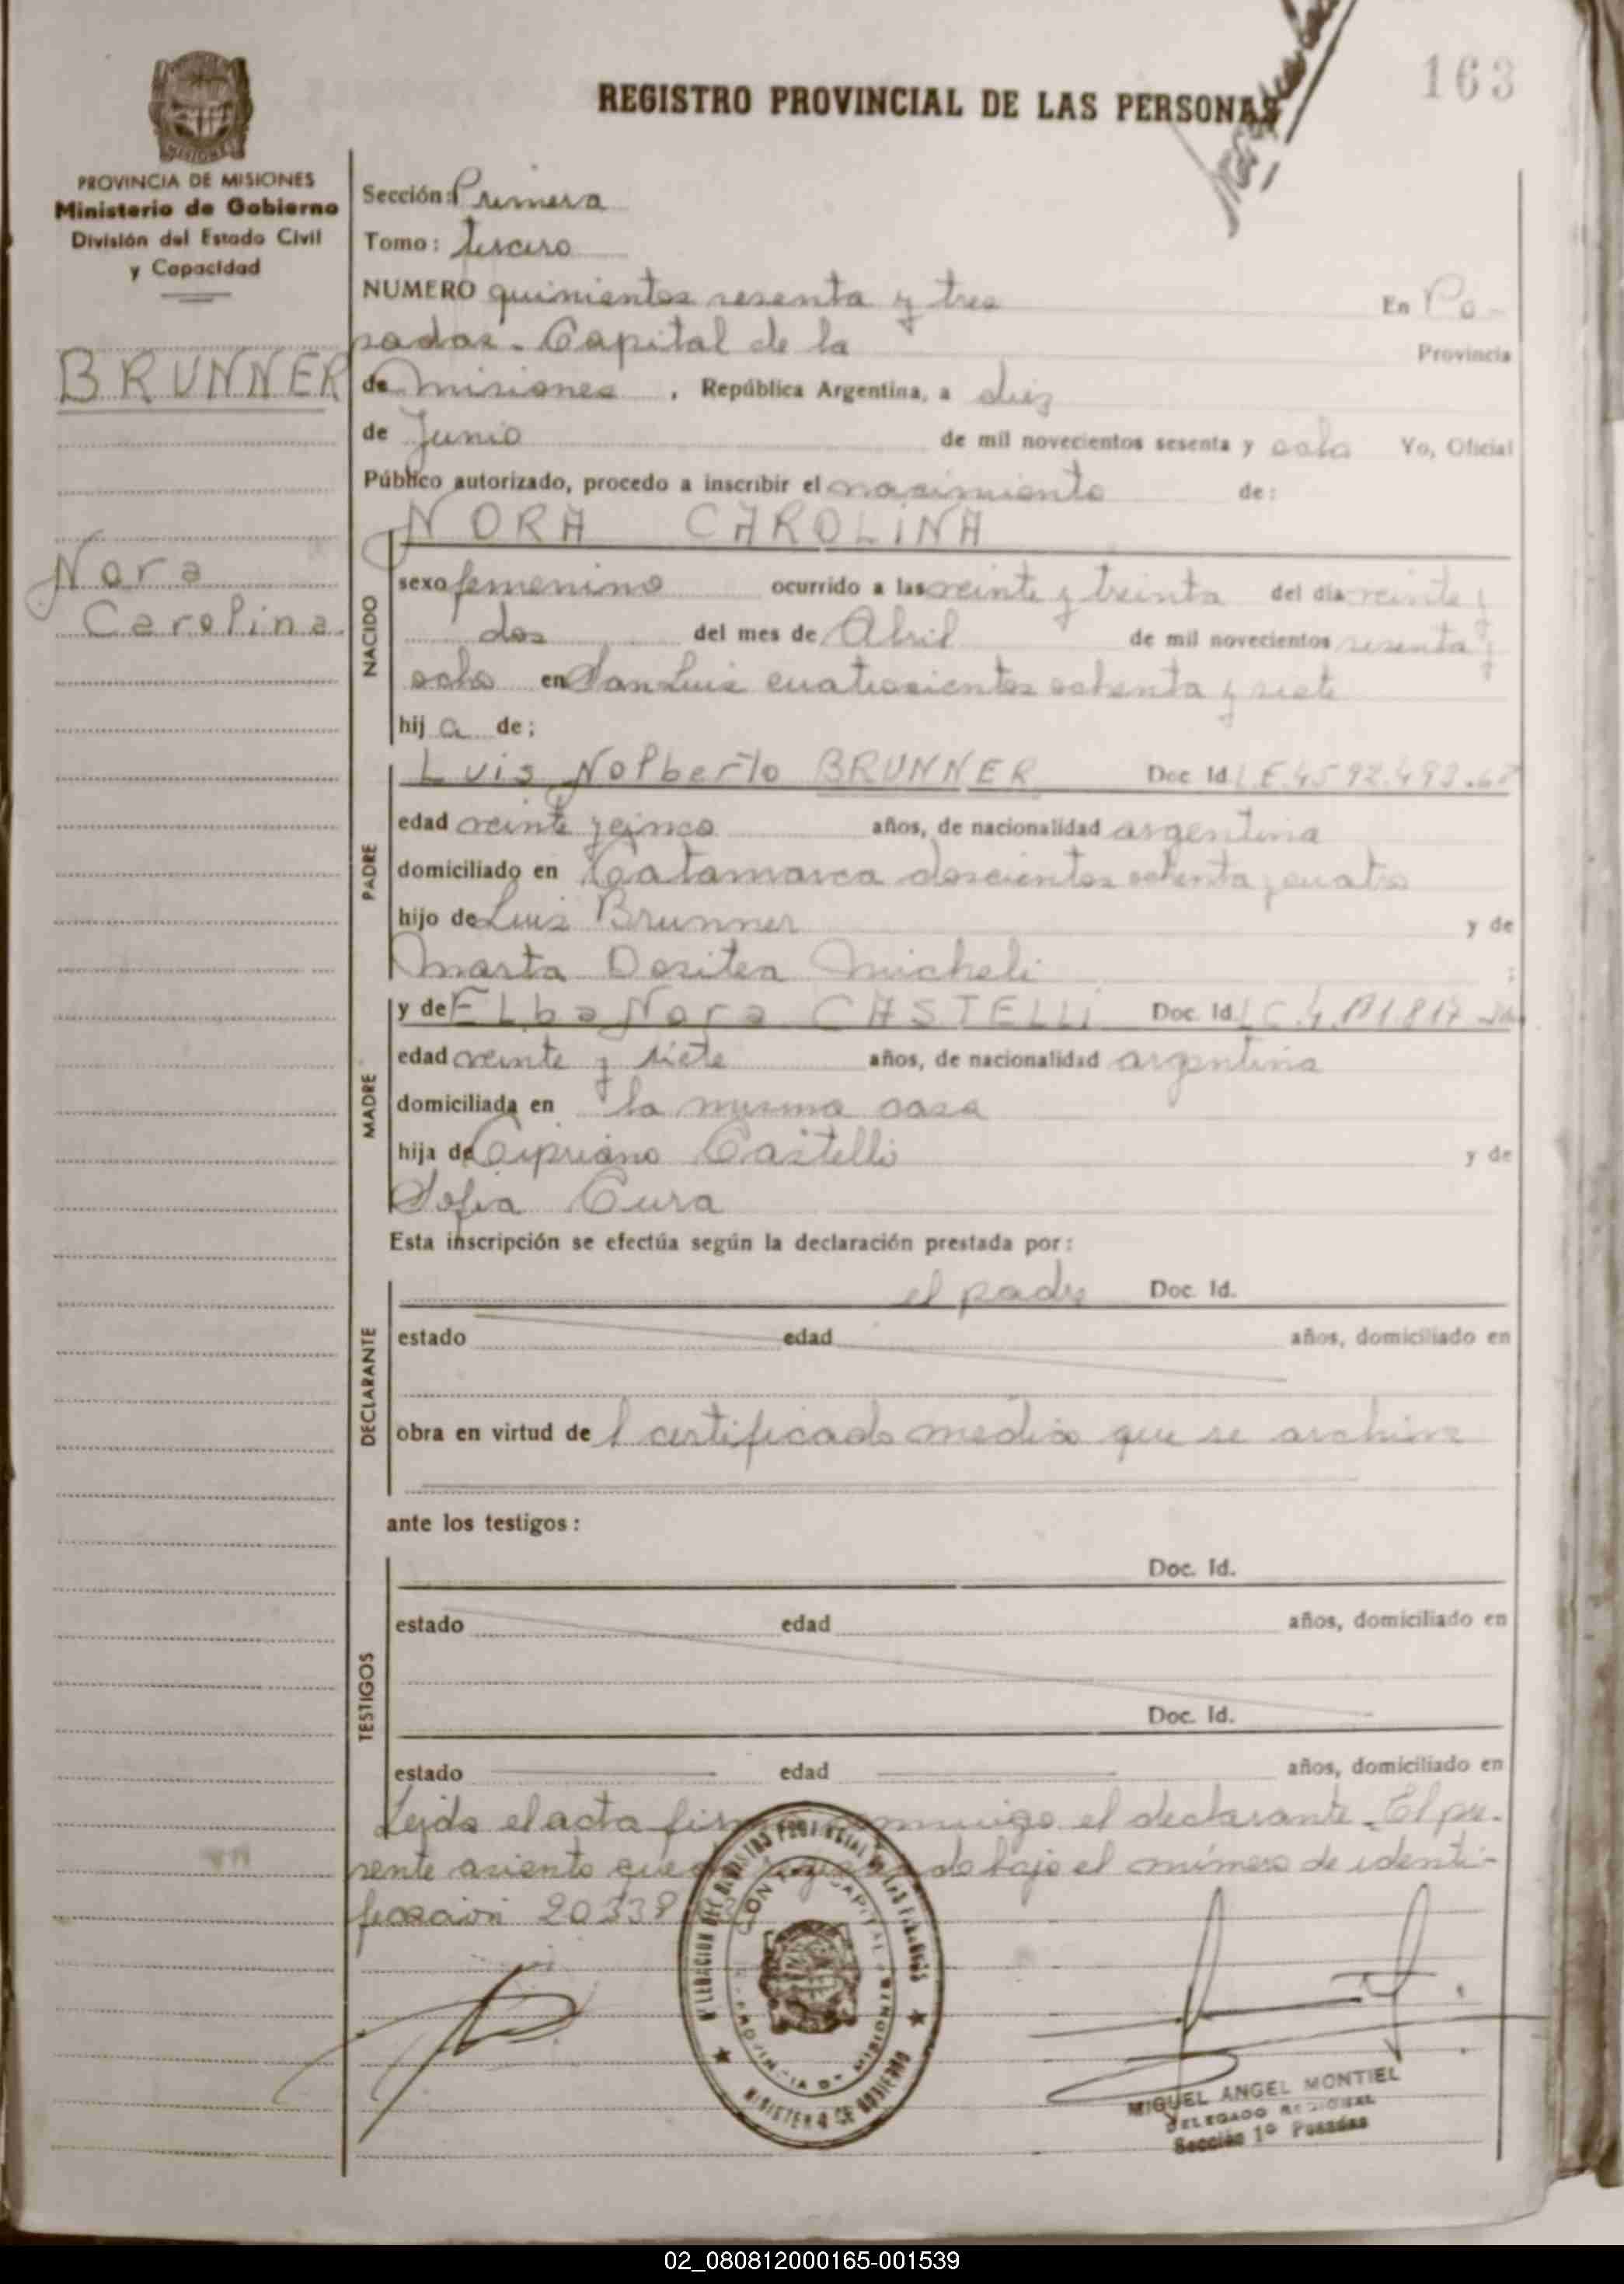 163
REGISTRO PROVINCIAL DE LAS PERSONAS
PROVINCIA DE MISIONES
Ministerio de Gobierno
División del Estado Civil
y Capacidad
BRUNNER
Nora
Carolina
Sección: Primera
Tomo: tercero
NUMERO quinientos sesenta y tres En Po-
sadas. Capital de la Provincia
de Misiones, República Argentina, a diez
de Junio de mil novecientos sesenta y ocho Yo, Oficial
Público autorizado, procedo a inscribir el nacimiento de:
NORA CAROLINA
NACIDO
sexo femenino ocurrido a las veinte y treinta del día veinte y
dos del mes de Abril de mil novecientos sesenta y
ocho en San Luis cuatrocientos ochenta y siete
hij a de;
PADRE
Luis Nolberto BRUNNER Doc Id L E.4592.493
edad veinte y cinco años, de nacionalidad argentina
domiciliado en Catamarca doscientos ochenta y cuatro
hijo de Luis Brunner y de
Marta Dositea Micheli ;
MADRE
y de Elba Nora CASTELLI Doc. Id. L C.4
edad veinte y siete años, de nacionalidad argentina
domiciliada en la misma casa
hija de Cipriano Castelli y de
Sofia Cura
Esta inscripción se efectúa según la declaración prestada por:
DECLARANTE
el padre Doc. Id.
estado edad años, domiciliado en
obra en virtud de l certificado medico que se archiva
ante los testigos:
TESTIGOS
Doc. Id.
estado edad años, domiciliado en
Doc. Id.
estado edad años, domiciliado en
Leida el acta firma conmigo el declarante. El pre-
sente asiento queda registrado bajo el número de identi-
ficación 20338
REGISTRO PROVINCIAL DE LAS PERSONAS
PROVINCIA DE MISIONES
MINISTERIO DE GOBIERNO
MIGUEL ANGEL MONTIEL
DELEGADO REGIONAL
Sección 1º Posadas
02_080812000165-001539